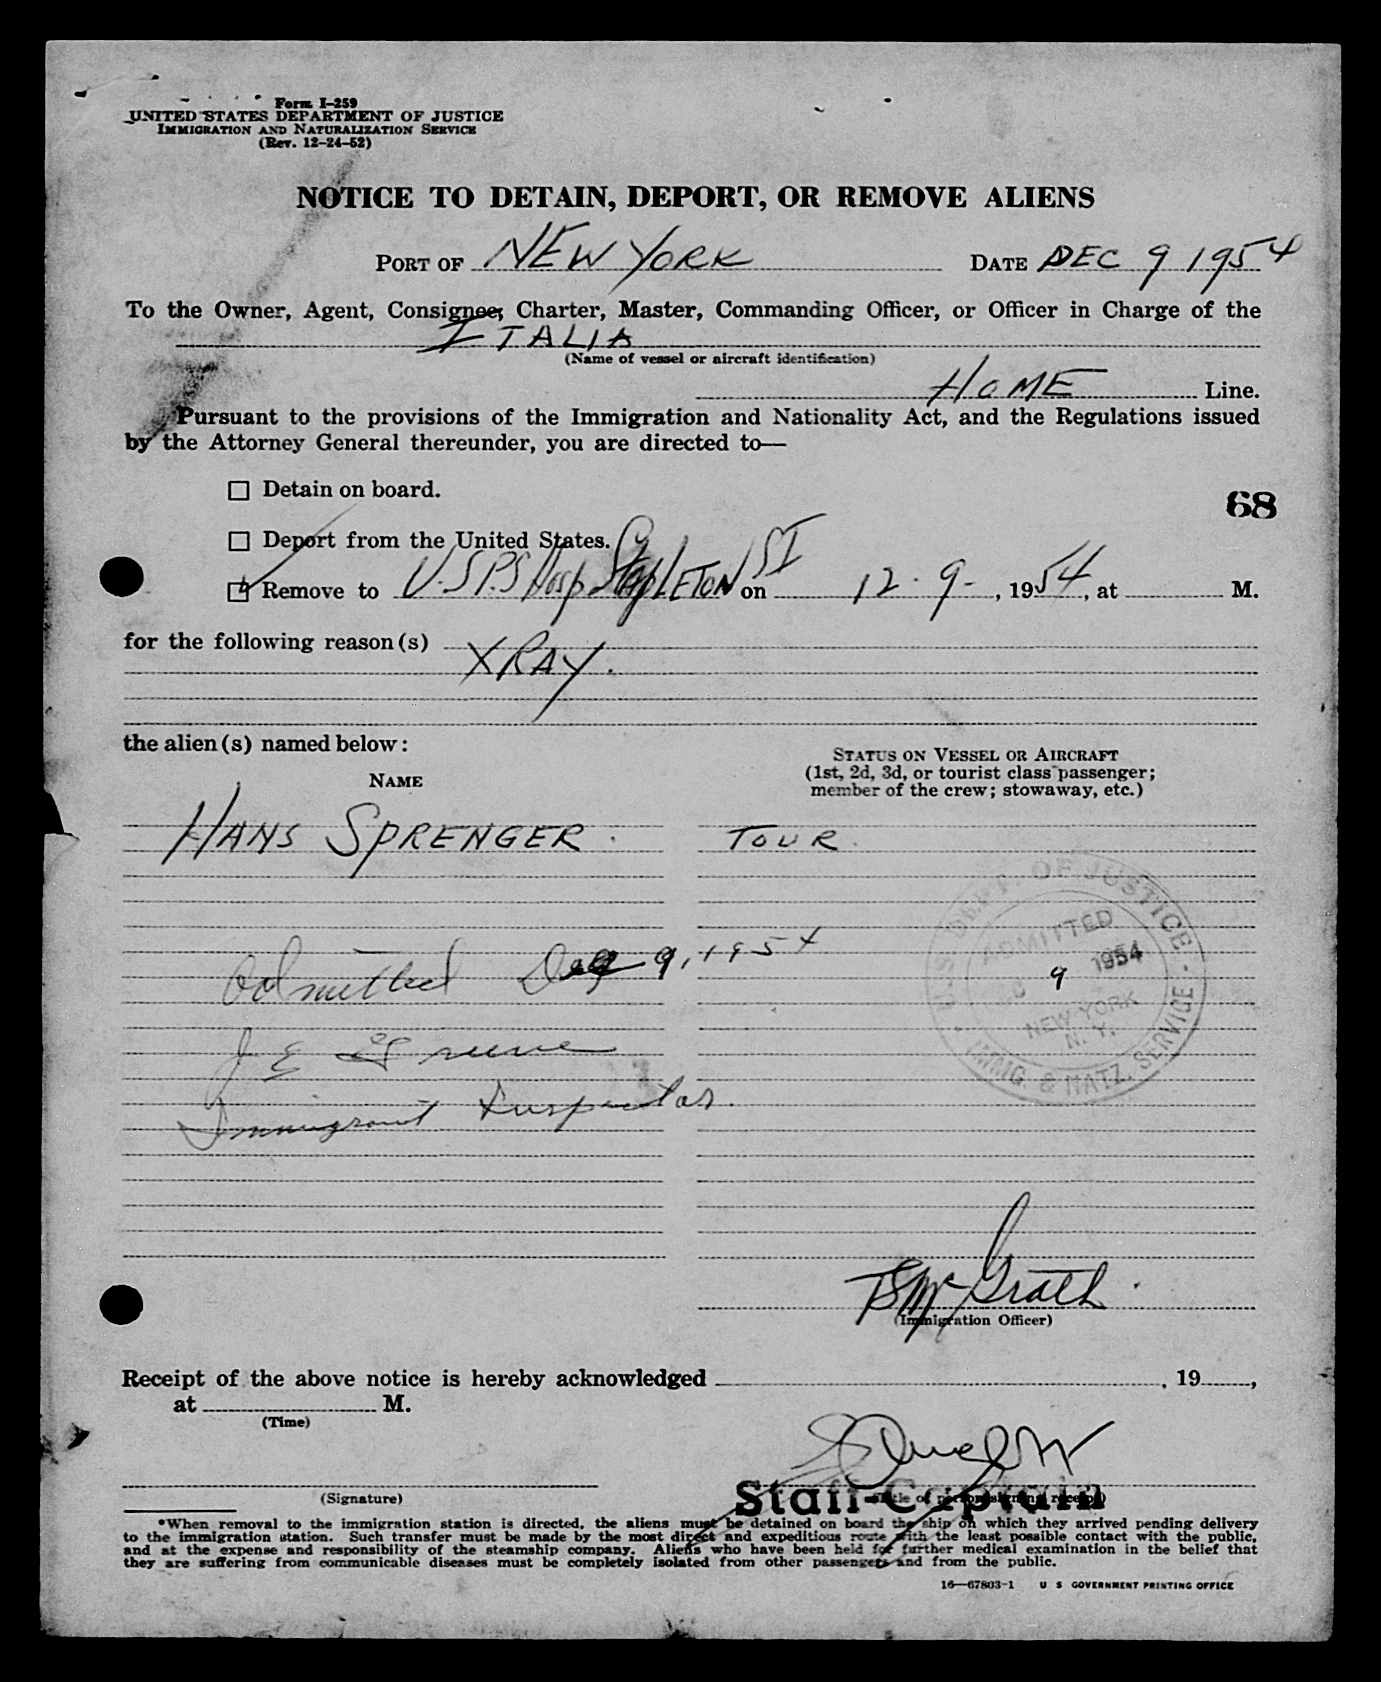 Form I-259
UNITED STATES DEPARTMENT OF JUSTICE
IMMIGRATION AND NATURALIZATION SERVICE
(Rev. 12-24-52)
NOTICE TO DETAIN, DEPORT, OR REMOVE ALIENS
PORT OF NEW YORK DATE DEC 9 1954
To the Owner, Agent, Consignee, Charter, Master, Commanding Officer, or Officer in Charge of the
ITALIA
(Name of vessel or aircraft identification)
HOME Line.
Pursuant to the provisions of the Immigration and Nationality Act, and the Regulations issued
by the Attorney General thereunder, you are directed to—
☐ Detain on board.
68
☐ Deport from the United States.
☑ Remove to U.S.P.S Hosp STAPLETON SI on 12-9-, 1954, at M.
for the following reason(s)
XRAY.
the alien(s) named below:
STATUS ON VESSEL OR AIRCRAFT
(1st, 2d, 3d, or tourist class passenger;
member of the crew; stowaway, etc.)
NAME
HANS SPRENGER. TOUR.
U.S. DEPT. OF JUSTICE
ADMITTED
9 1954
NEW YORK
N. Y.
IMMG. & NATZ. SERVICE
Admitted Dec 9, 1954
J E Greene
Immigrant Inspector.
McGrath
(Immigration Officer)
Receipt of the above notice is hereby acknowledged , 19 ,
at M.
(Time)
(Signature)
Staff-Captain
(Title of person signing receipt)
*When removal to the immigration station is directed, the aliens must be detained on board the ship on which they arrived pending delivery
to the immigration station. Such transfer must be made by the most direct and expeditious route with the least possible contact with the public,
and at the expense and responsibility of the steamship company. Aliens who have been held for further medical examination in the belief that
they are suffering from communicable diseases must be completely isolated from other passengers and from the public.
16—67803-1 U S GOVERNMENT PRINTING OFFICE